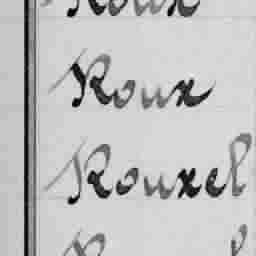 Roux
Roux
Rouxel